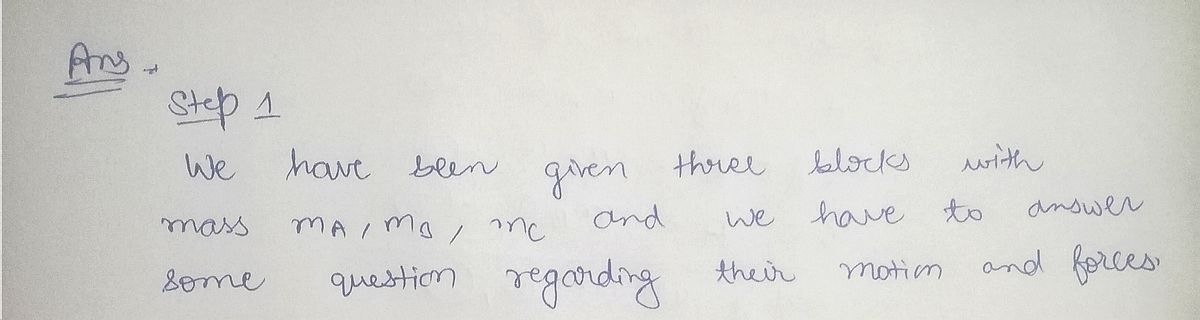 Ans →
Step 1
We have been given three blocks with
mass mA, mB, mC and we have to answer
some question regarding their motion and forces.